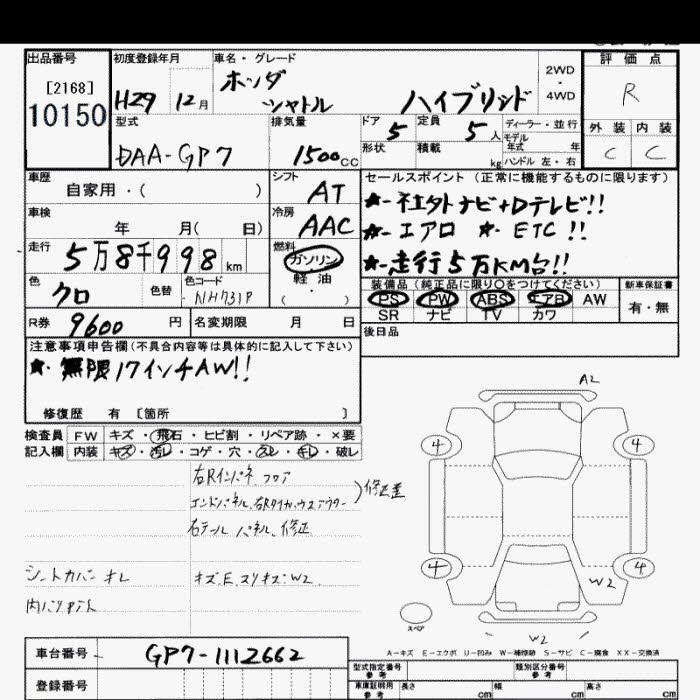 出品番号
[2168]
10150
初度登録年月
H29 12月
車名・グレード
ホンダ
シャトル ハイブリッド
2WD
・
4WD
評価点
R
外装 内装
C C
型式
DAA-GP7
排気量
1500cc
ドア
5
定員
5人
形状
積載
kg
ディーラー・並行
モデル
年式 年
ハンドル 左・右
車歴
自家用・( )
シフト
AT
車検
年 月( 日)
冷房
AAC
走行
5万8千998km
燃料
ガソリン
軽油
・
( )
色
クロ
色替
色コード
NH731P
R券 9600円
名変期限 月 日
セールスポイント (正常に機能するものに限ります)
★-社外ナビ+Dテレビ!!
★-エアロ ★-ETC!!
★-走行5万KM台!!
装備品(純正品に限り○をつけてください)
PS PW ABS エアB AW
SR ナビ TV カワ
新車保証書
有・無
後日品
注意事項申告欄(不具合内容等は具体的に記入して下さい)
★-無限17インチAW!!
修復歴 有 [箇所 ]
検査員 FW キズ・飛石・ヒビ割・リペア跡・×要
記入欄 内装 キズ・汚レ・コゲ・穴・スレ・キレ・破レ
右Rインパネ フロア
エンドパネル、
修正歪
右テールパネル 修正
シートカバー キレ
キズ.E.スリキズ.W2
A2
4 4
4 4
W2
スペア
W2
A-キズ E-エクボ U-凹み W-補修跡 S-サビ C-腐食 XX-交換済
車台番号 GP7-1112662
登録番号
型式指定番号
参考
類別区分番号
参考
車庫証明用
参考
長さ cm 幅 cm 高さ cm